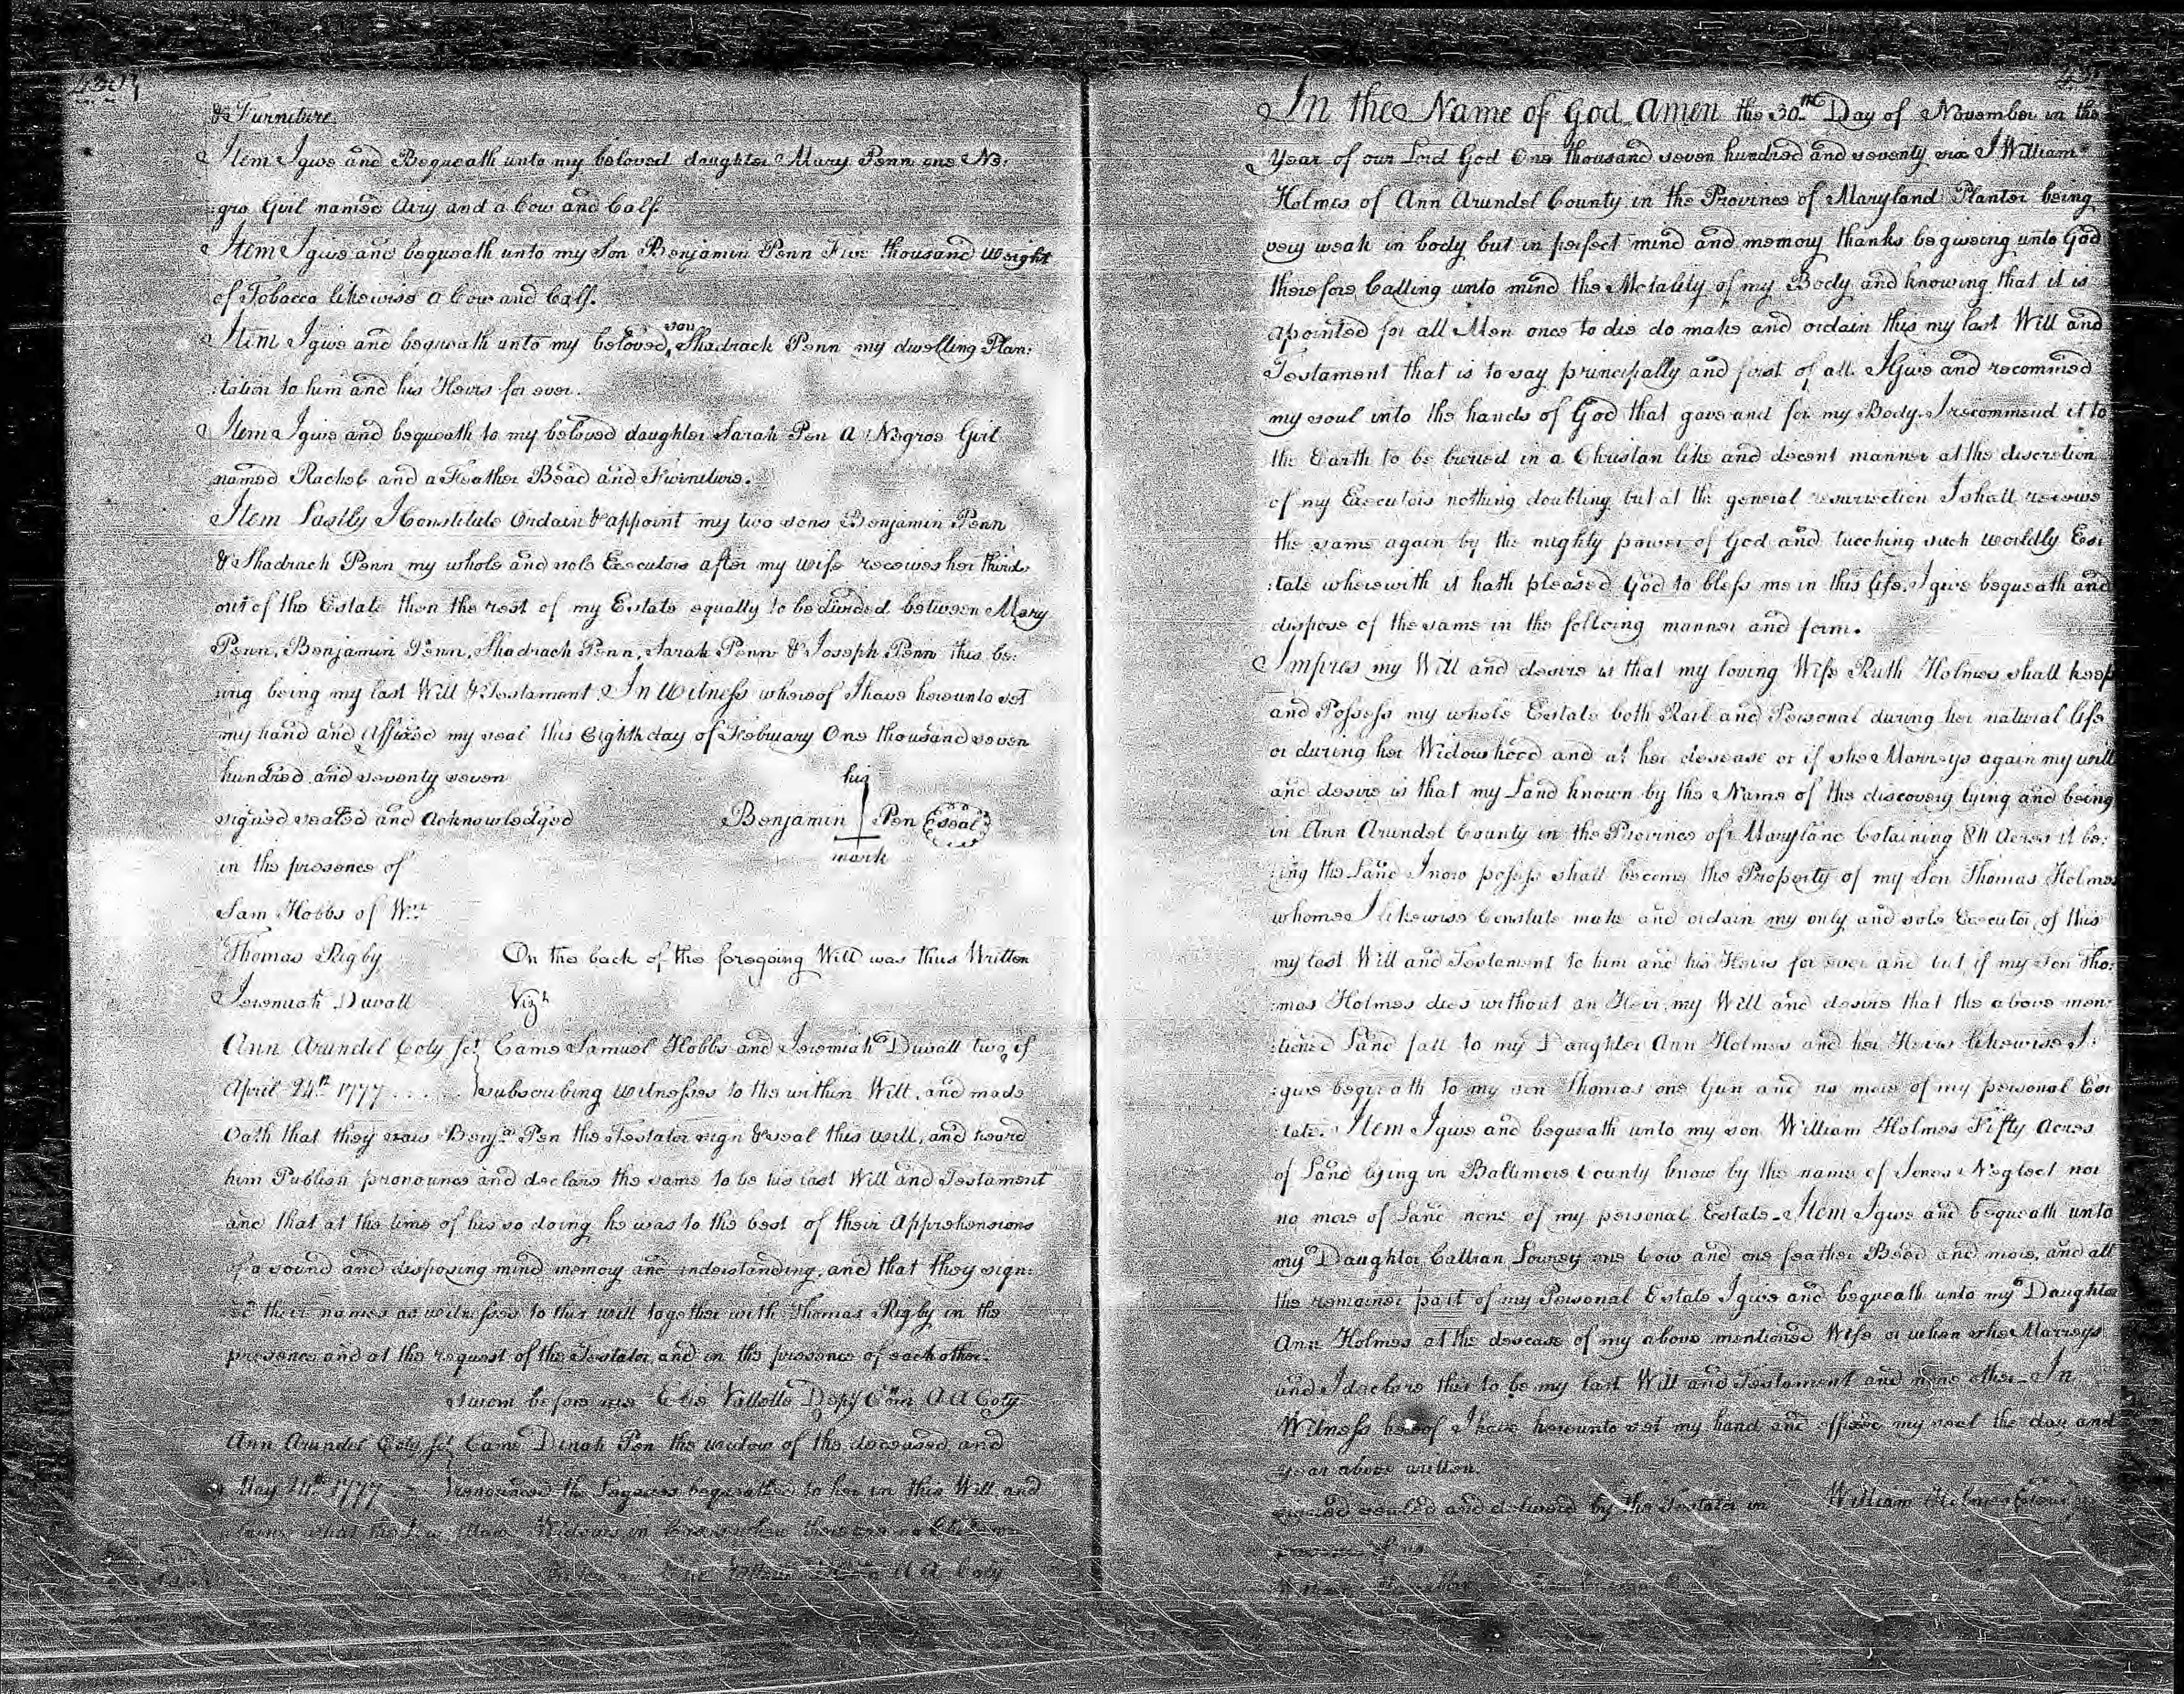 & Furniture.
Item I give and Bequeath unto my beloved daughter Mary Penn one Ne:
:gro Girl named Airy and a Cow and Calf.
Item I give and bequeath unto my Son Benjamin Penn Five thousand Weight
of Tobacco likewise a Cow and Calf.
Item I give and bequeath unto my beloved son Shadrack Penn my dwelling Plan:
:tation to him and his Heirs for ever.
Item I give and bequeath to my beloved daughter Sarah Pen a Negroe Girl
named Rachel and a Feather Bead and Furniture.
Item Lastly I Constitute Ordain & appoint my two sons Benjamin Penn
& Shadrach Penn my whole and sole Executors after my wife receives her thirds
out of the Estate then the rest of my Estate equally to be divided between Mary
Penn, Benjamin Penn, Shadrach Penn, Sarah Penn & Joseph Penn this be:
:ing being my last Will & Testament In Witness whereof I have hereunto set
my hand and Affixed my seal this Eighth day of February One thousand seven
hundred and seventy seven
his
signed sealed and Acknowledged Benjamin Pen Seal
in the presence of mark
Sam Hobbs of Wm
Thomas Rigby On the back of the foregoing Will was thus Written
Jeremiah Duvall Vizt
Ann Arundel Coty sct Came Samuel Hobbs and Jeremiah Duvall two of
April 24th 1777 . . . . subscribing Witnesses to the within Will, and made
Oath that they saw Benjn Pen the Testator sign & seal this will, and heard
him Publish pronounce and declare the same to be his last Will and Testament
and that at the time of his so doing he was to the best of their Apprehensions
of a sound and disposing mind memory and understanding, and that they sign:
:ed their names as witnesses to this will together with Thomas Rigby in the
presence and at the request of the Testator and in the presence of each other.
Sworn before me Elie Vallette Depy Com A A Coty
Ann Arundel Coty sct Came Dinah Pen the widow of the deceased and
May 1777 renounced the Legacies bequeathed to her in this Will and
A A Coty
In the Name of God Amen the 30th Day of November in the
Year of our Lord God One thousand seven hundred and seventy six I William
Holmes of Ann Arundel County in the Province of Maryland Planter being
very weak in body but in perfect mind and memory thanks be giveing unto God
therefore Calling unto mind the Motality of my Body and knowing that it is
apointed for all Men once to die do make and ordain this my last Will and
Testament that is to say principally and first of all. I Give and recommed
my soul into the hands of God that gave and for my Body I recommend it to
the Earth to be buried in a Christan like and decent manner at the discretion
of my Executors nothing doubting but at the general resurrection I shall receive
the same again by the mighty power of God and tucching such worldly Es:
:tate wherewith it hath pleased God to bless me in this life. I give bequeath and
dispose of the same in the folloing manner and form.
Impres my Will and desire is that my loving Wife Ruth Holmes shall keep
and Possess my whole Estate both Rail and Personal during her natural life
or during her Widowhood and at her desease or if she Marreys again my will
and desire is that my Land known by the Name of the discovery lying and being
in Ann Arundel County in the Province of Maryland Cotaining 84 Acres it be:
:ing the Land I now possess shall become the Property of my Son Thomas Holmes
whome I likewise Constute make and ordain my only and sole Executor of this
my last Will and Testament to him and his Heirs for ever and but if my Son Tho:
:mas Holmes dies without an Heir my Will and desire that the above men:
:tioned Land fall to my Daughter Ann Holmes and her Heirs likewise I:
:give bequeath to my son Thomas one Gun and no more of my personal Es:
:tate. Item I give and bequeath unto my son William Holmes Fifty Acres
of Land lying in Baltimore County know by the name of Jones Neglect nor
no more of Land none of my personal Estate. Item I give and bequeath unto
my Daughter Cattran one Cow and one feather Bead and more, and all
the remainer part of my Personal Estate I give and bequeath unto my Daughter
Ann Holmes at the desease of my above mentioned Wife or when she Marreys
and I declare this to be my last Will and Testament and none other. In
Witness hereof I have hereunto set my hand and affixed my seal the day and
year above written.
signed sealed and deliverd by the Testator in William Holmes